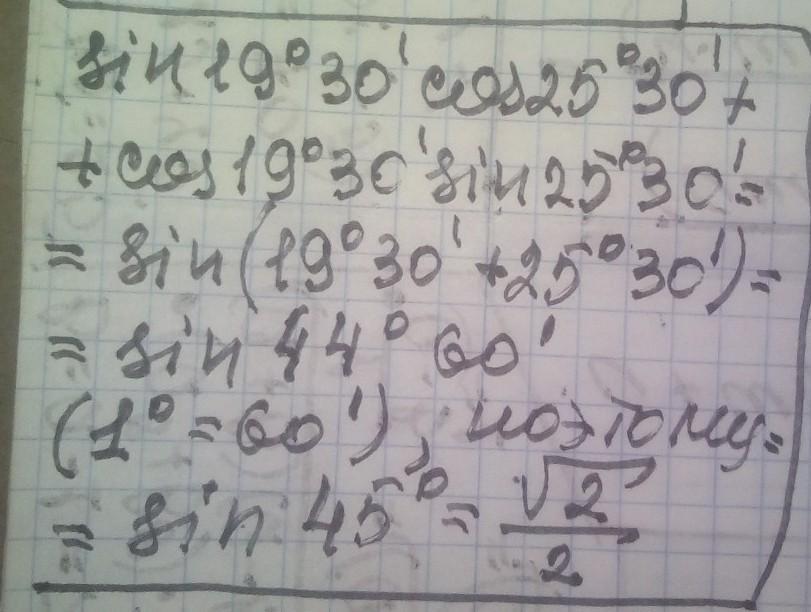 sin 19° 30' cos 25° 30' +
+ cos 19° 30' sin 25° 30' =
= sin (19° 30' + 25° 30') =
= sin 44° 60'
(1° = 60'), поэтому =
= sin 45° = √2/2